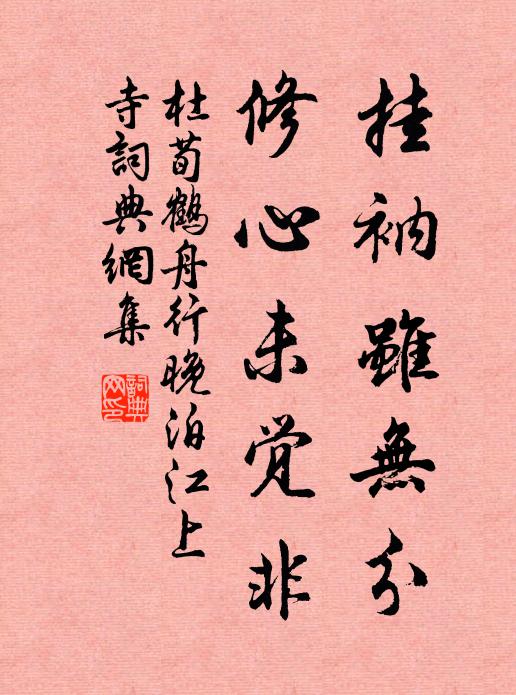 挂衲雖無分
修心未覺非
杜荀鶴舟行晚泊江上
寺詞典網集
詞典
网印